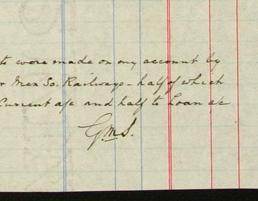 to were made on my account by
r Mex So. Railways - half of which
Current a/c and half to Loan a/c
G.M.S.